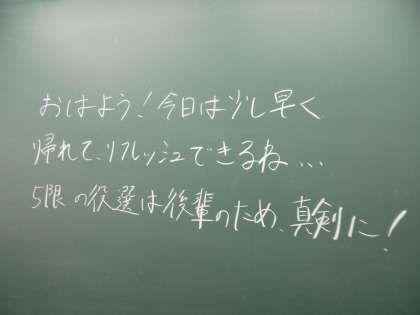 おはよう!今日は少し早く
帰れて、リフレッシュできるね…
5限の役選は後輩のため、真剣に!